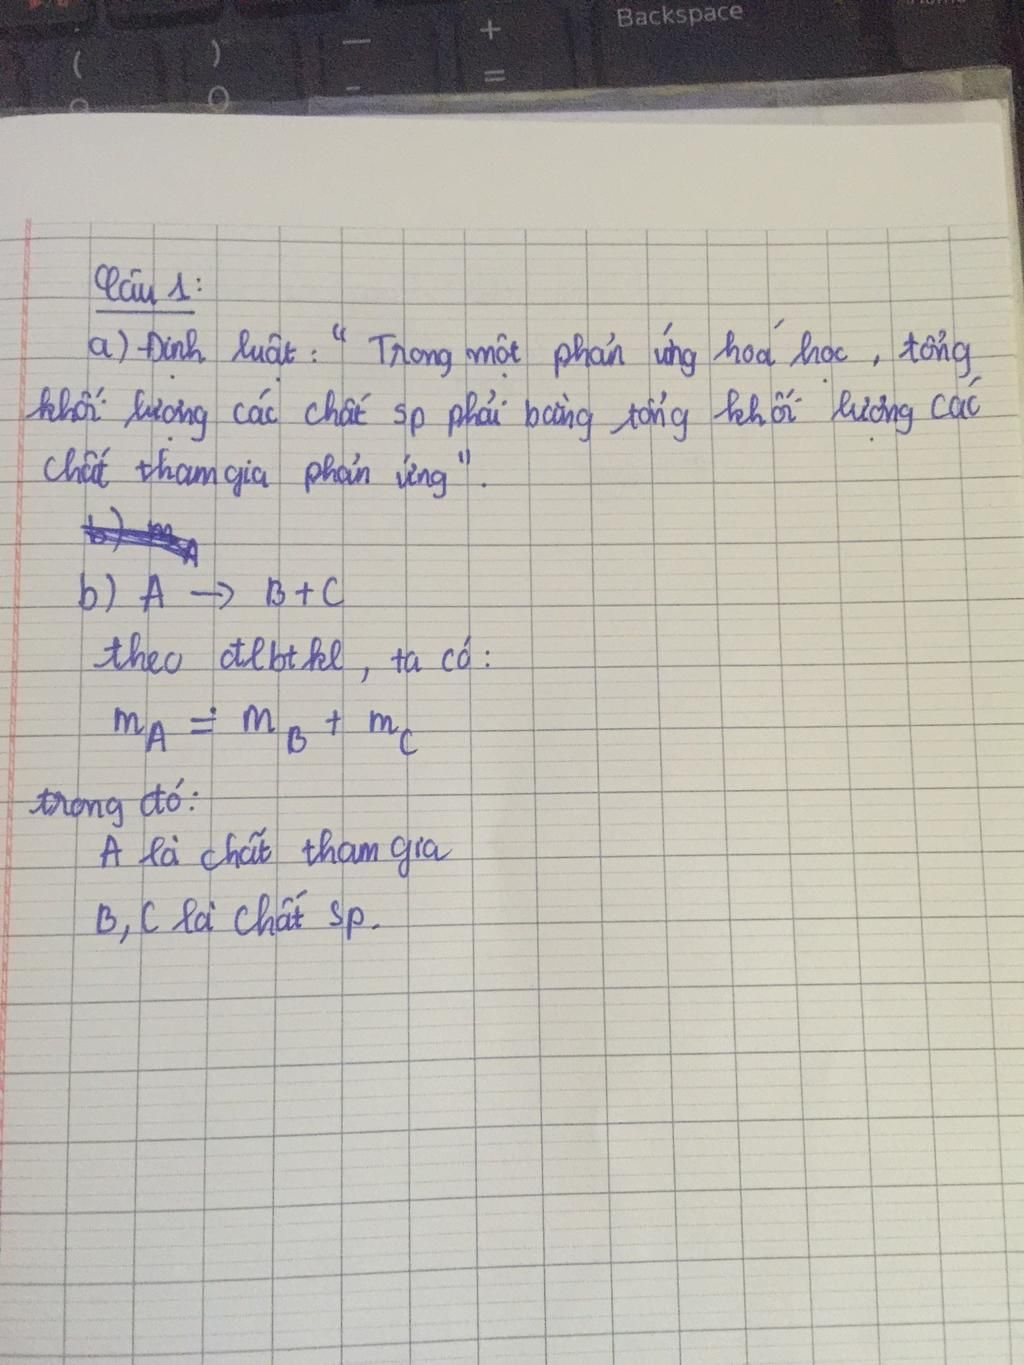 Backspace
( ) — +
9 0 - =
Câu 1:
a) Định luật: “Trong một phản ứng hoá học, tổng
khối lượng các chất sp phải bằng tổng khối lượng các
chất tham gia phản ứng”.
b) mA
b) A → B + C
theo đlbtkl, ta có:
mA = mB + mC
trong đó:
A là chất tham gia
B, C là chất sp.